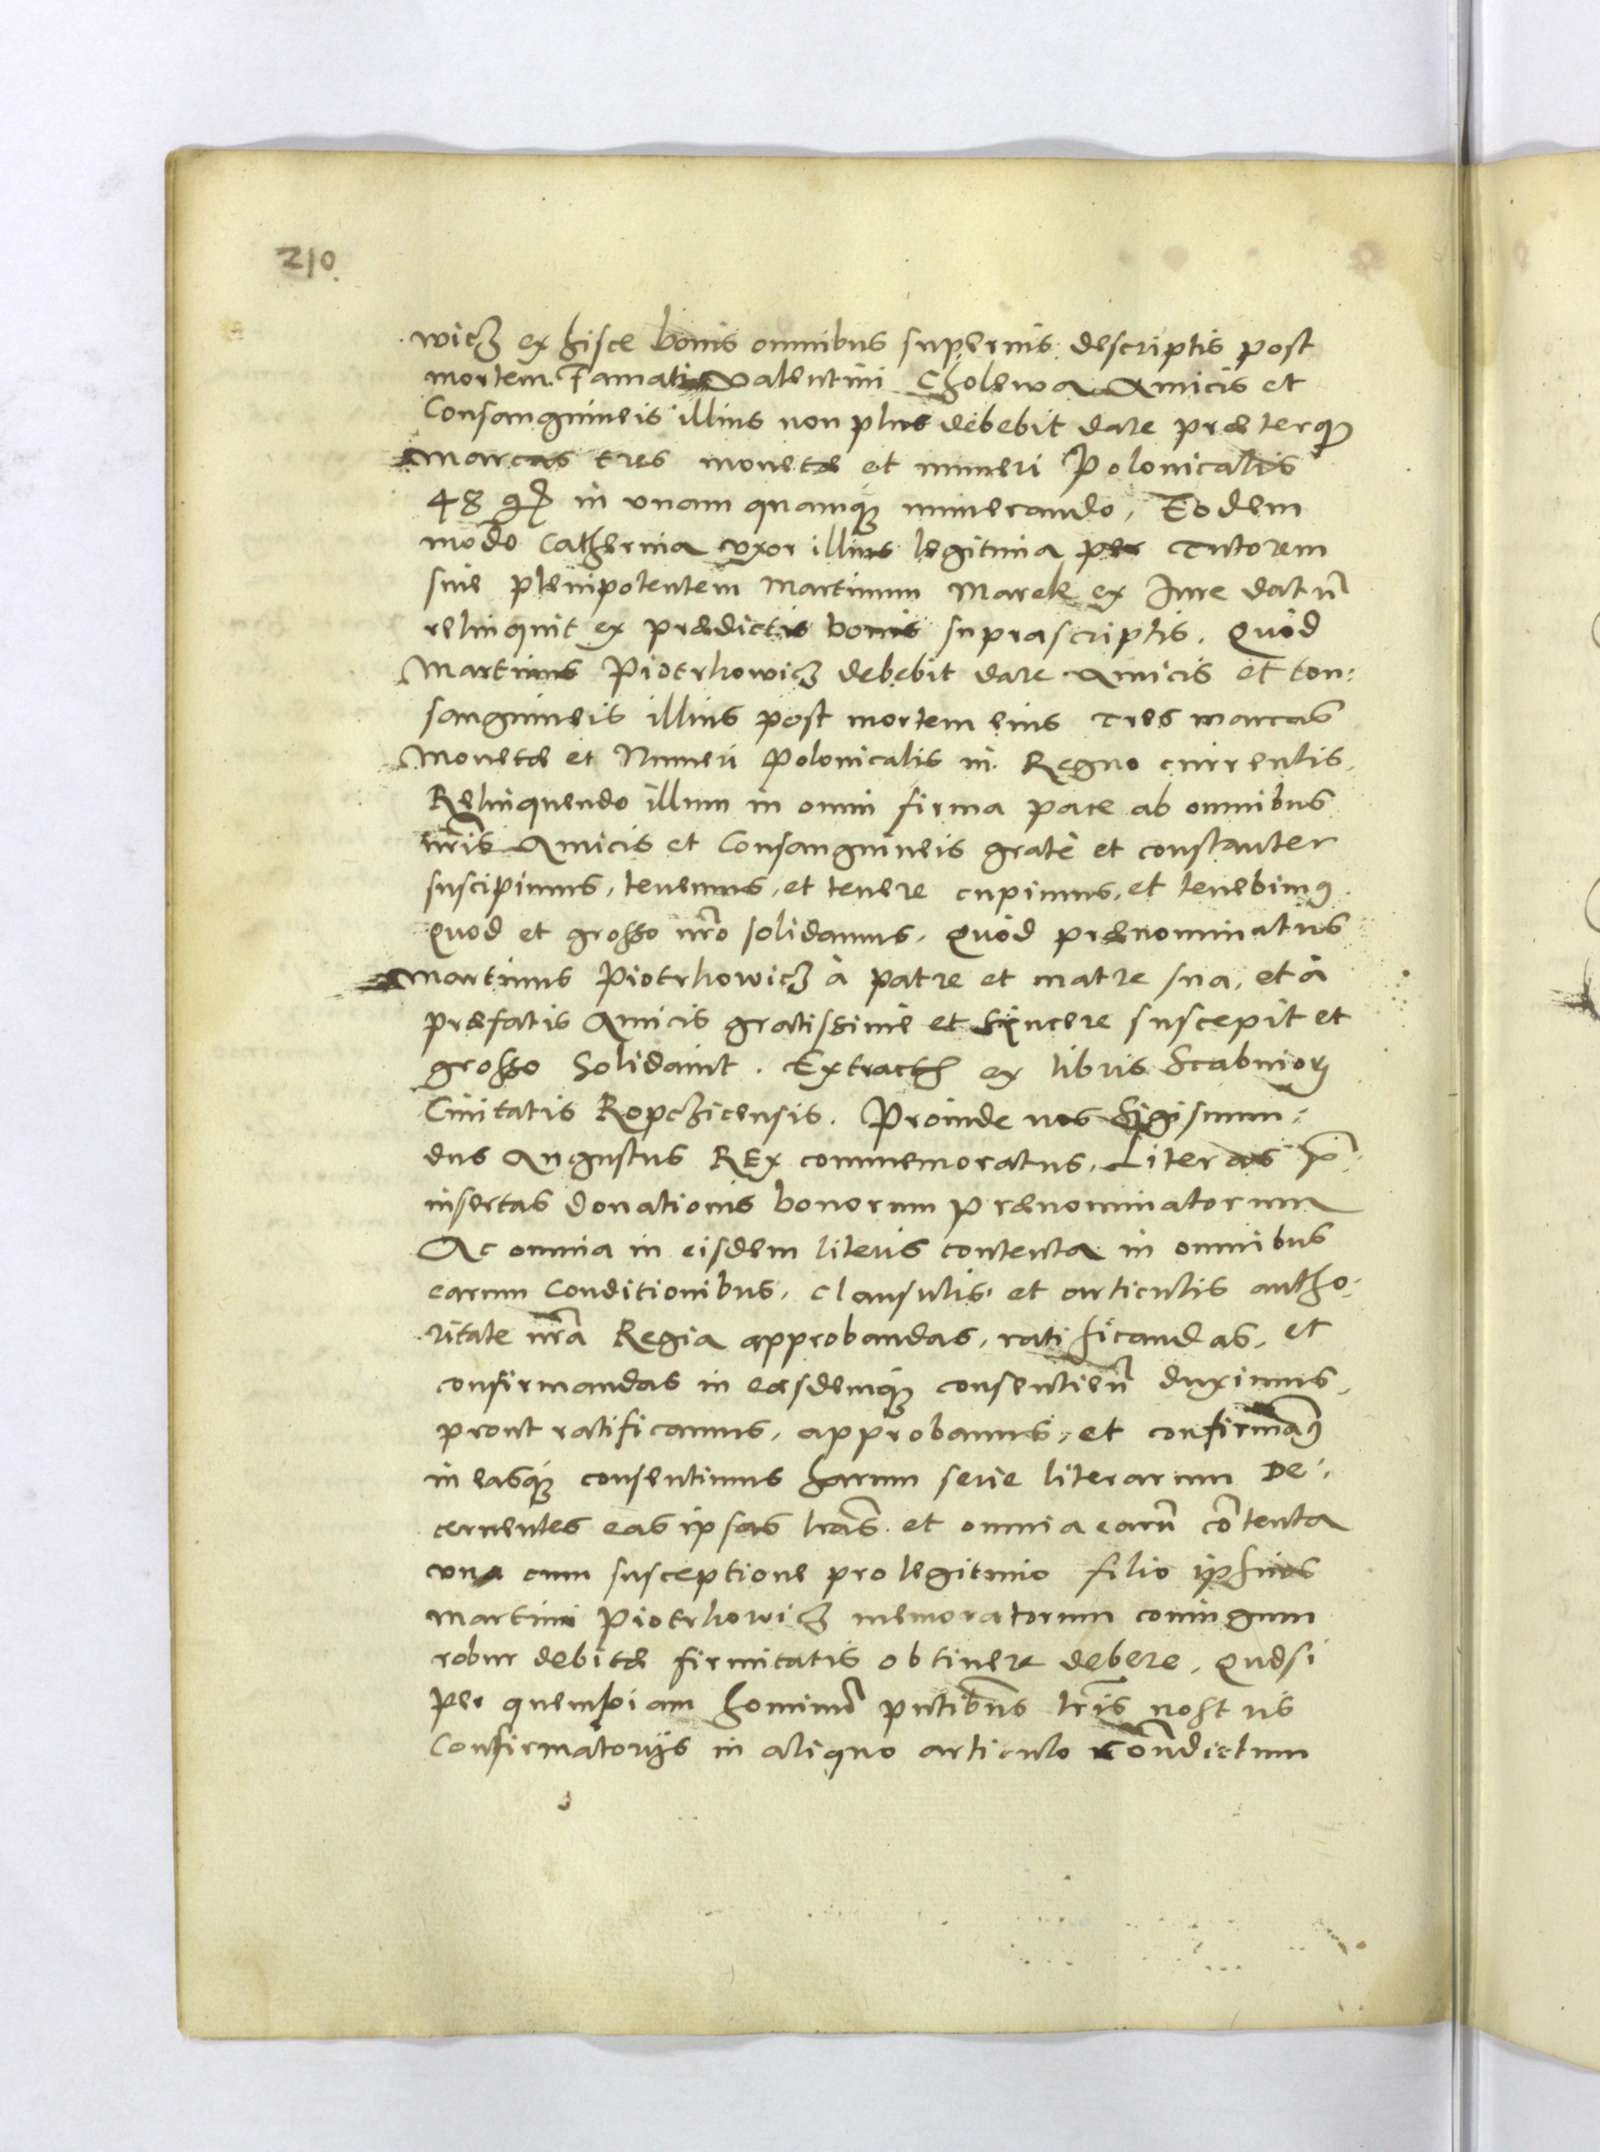 210
wicz ex hisce bonis omnibus supernis descriptis post
mortem Famati Valentini Cholewa Amicis et
Consanguineis illius non plus debebit dare præterq̃
Marcas tres monetæ et numeri Polonicalis
48 gr̃ in unam quamq; numerando, Eodem
modo Catherina uxor illius legitima per Tutorem
suũ plenipotentem Martinum Marek ex Jure datũ
relinquit ex prædictis bonis suprascriptis. Quod
Martinus Piotrhowicz debebit dare Amicis et Con:
sanguineis illius post mortem eius tres marcas
Monetæ et Numeri Polonicalis in Regno currentis,
Relinquendo illum in omni firma pace ab omnibus
nr̃is Amicis et Consanguineis gratè et constanter
suscipimus, tenemus, et tenere cupimus, et tenebimꝰ
Quod et grosso nr̃o solidamus. Quod prænominatus
Martinus Piotrhowicz à patre et matre sua, et à
præfatis Amicis gratissime et sincere suscepit et
grosso Solidavit. Extractũ ex libris Scabnioꝝ
Civitatis Ropczicensis. Proinde nos Sigismun:
dus Augustus REx commemoratus, Literas
insertas Donationis bonorum prænominatorum
Ac omnia in eisdem literis contenta in omnibus
earum Conditionibus, clausulis, et articulis autho:
ritate nr̃a Regia approbandas, ratificandas, et
confirmandas in eosdemq; consentienũ duximus,
prout ratificamus, approbamus, et confirmamꝰ
in easq; consentimus harum serie literarum De:
cernentes eas ipsas lr̃as et omnia earũ cõtenta
una cum susceptione pro legitimo filio ipsius
Martini Piotrhowicz memoratorum coniugum
robur debitæ firmitatis obtinere debere. Quod si
per quempiam hominũ pñtibus lr̃is nostris
Confirmatorijs in aliquo articulo cõtradictum